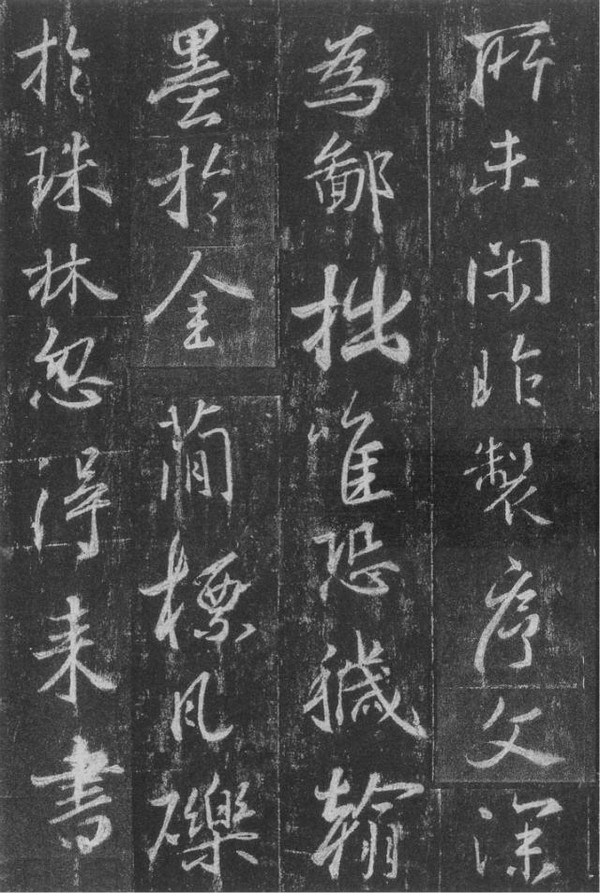 所未閑昨製序文深
為鄙拙唯恐穢翰
墨於金簡標瓦礫
於珠林忽得来書